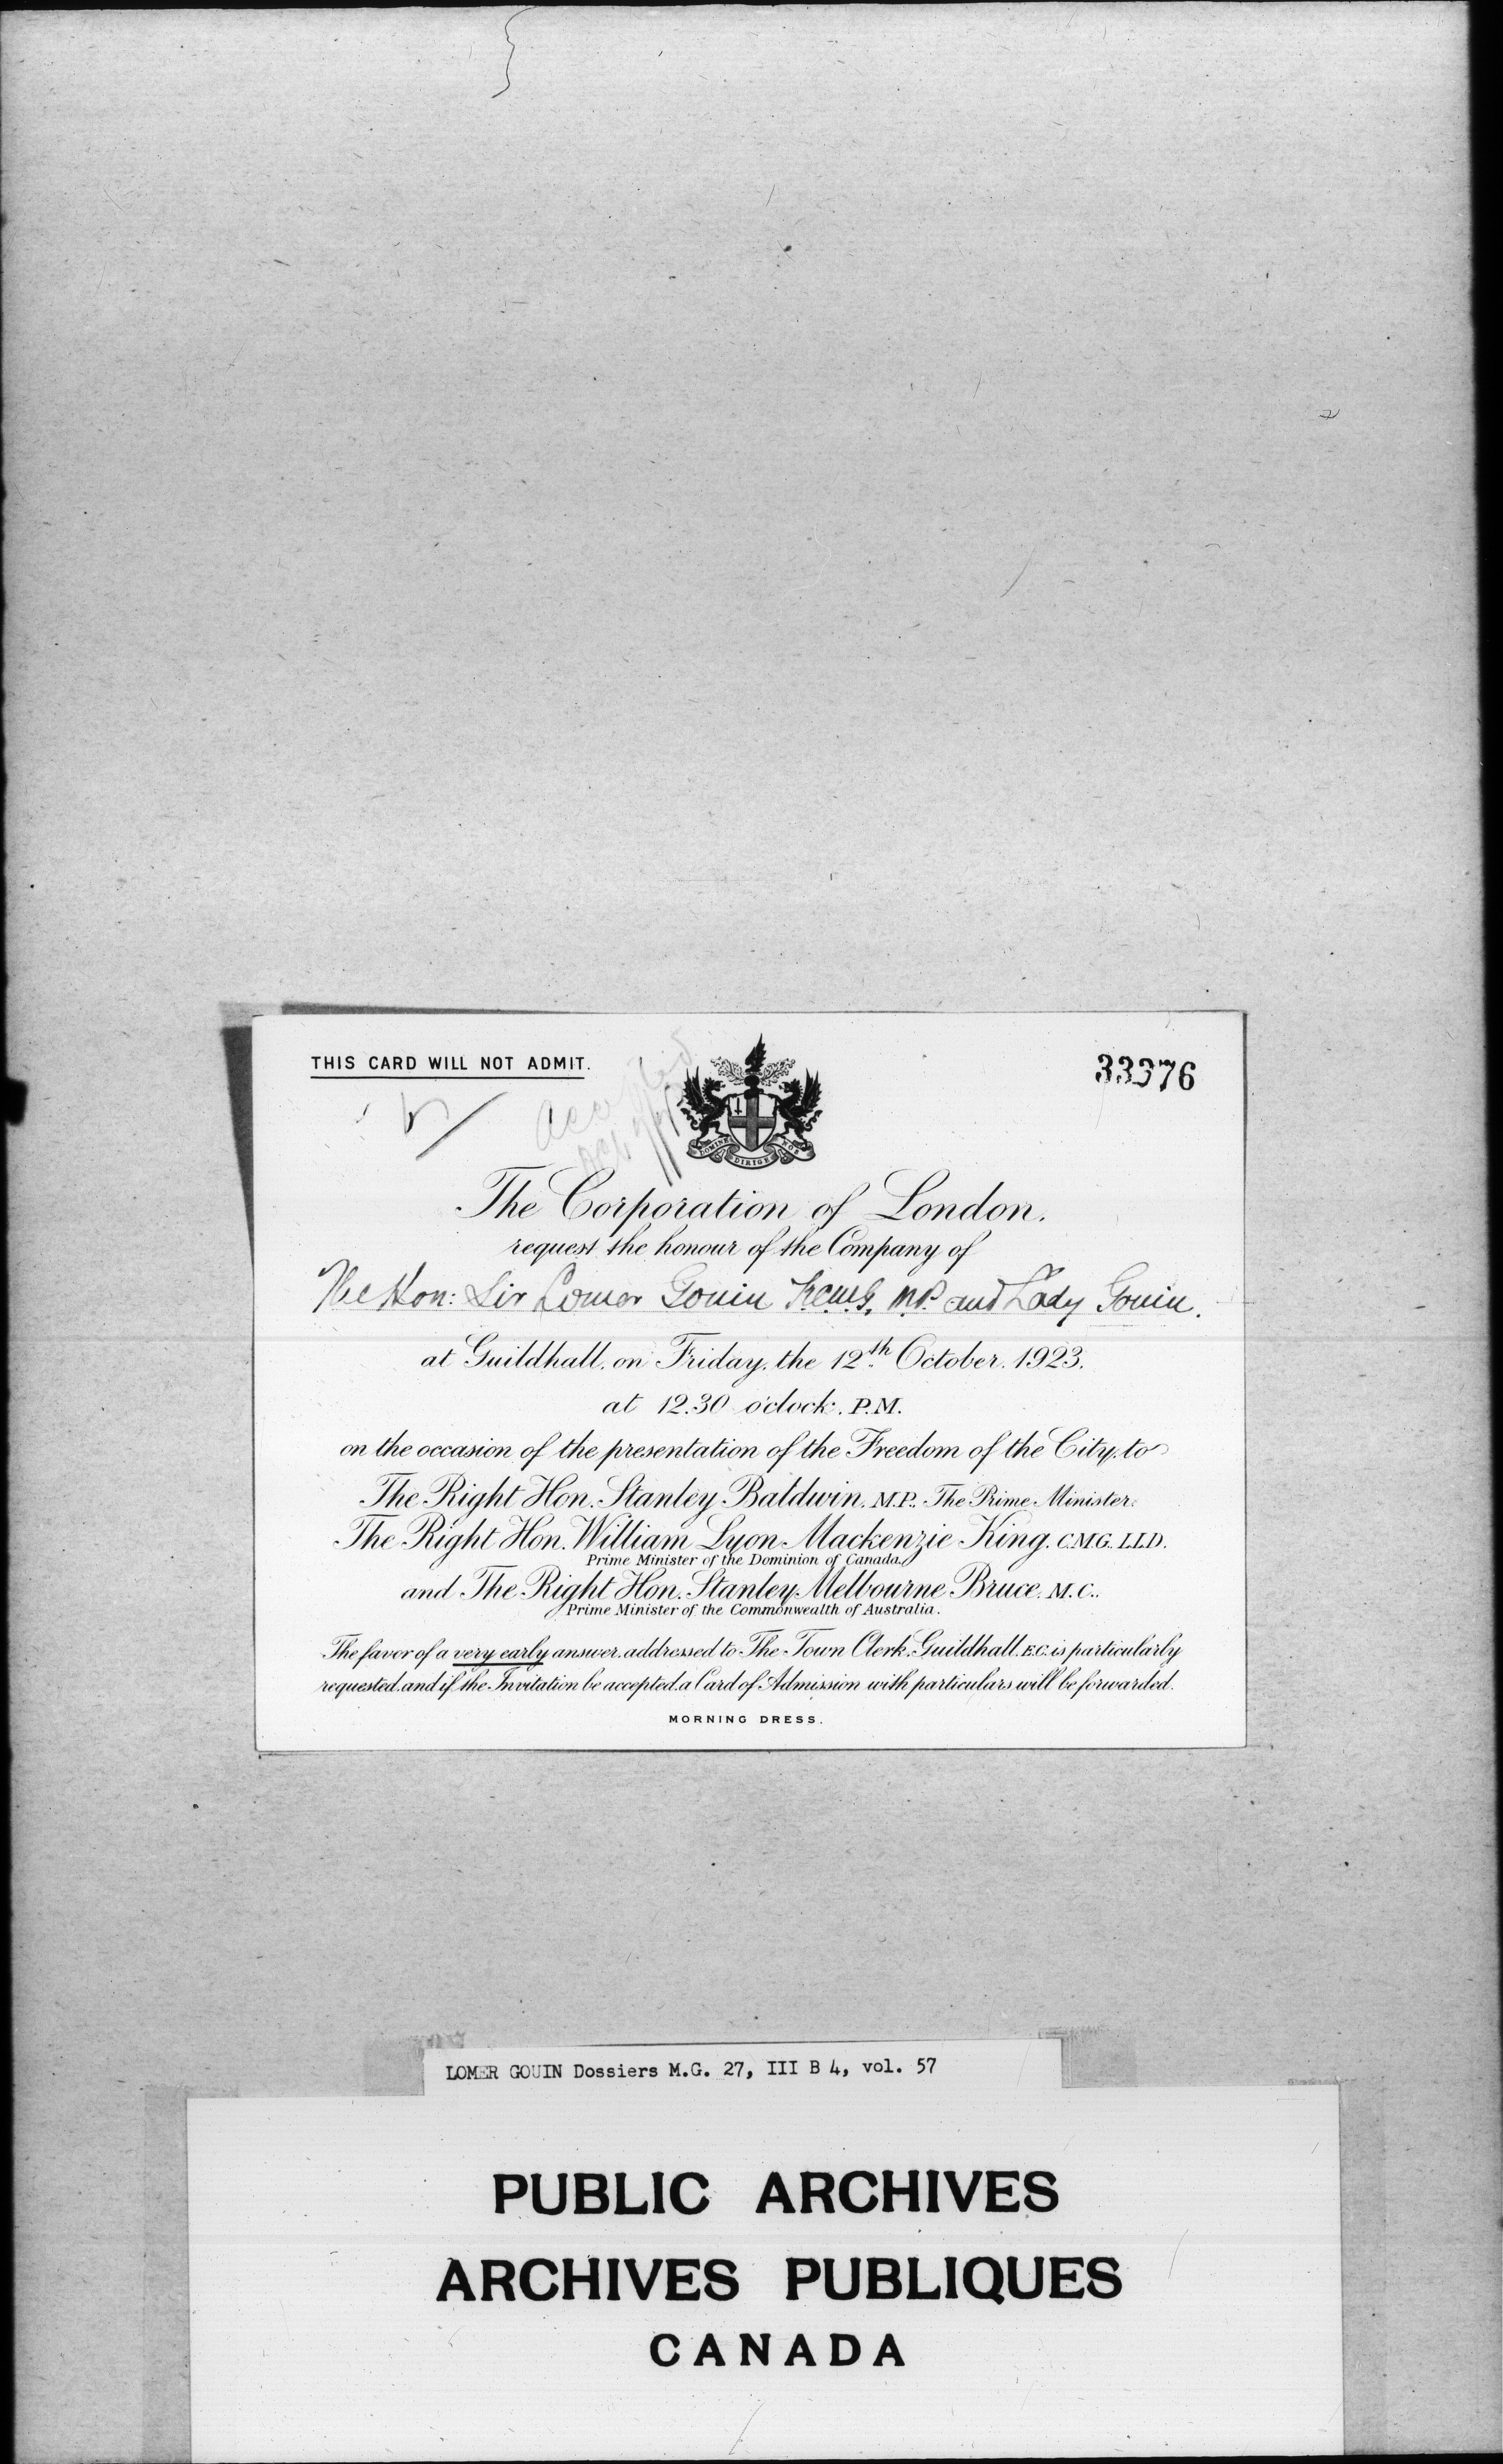 THIS CARD WILL NOT ADMIT.
33376
accepted
DOMINE DIRIGE NOS
The Corporation of London.
request the honour of the Company of
The Hon: Sir Lomer Gouin K.C.M.G. M.P. and Lady Gouin.
at Guildhall, on Friday, the 12th October, 1923,
at 12.30 o'clock, P.M.
on the occasion of the presentation of the Freedom of the City, to
The Right Hon. Stanley Baldwin, M.P., The Prime Minister,
The Right Hon. William Lyon Mackenzie King, C.M.G. LL.D.
Prime Minister of the Dominion of Canada,
and The Right Hon. Stanley Melbourne Bruce, M.C.,
Prime Minister of the Commonwealth of Australia.
The favor of a very early answer, addressed to The Town Clerk, Guildhall, E.C. is particularly
requested, and if the Invitation be accepted, a Card of Admission with particulars will be forwarded.
MORNING DRESS.
LOMER GOUIN Dossiers M.G. 27, III B 4, vol. 57
PUBLIC ARCHIVES
ARCHIVES PUBLIQUES
CANADA